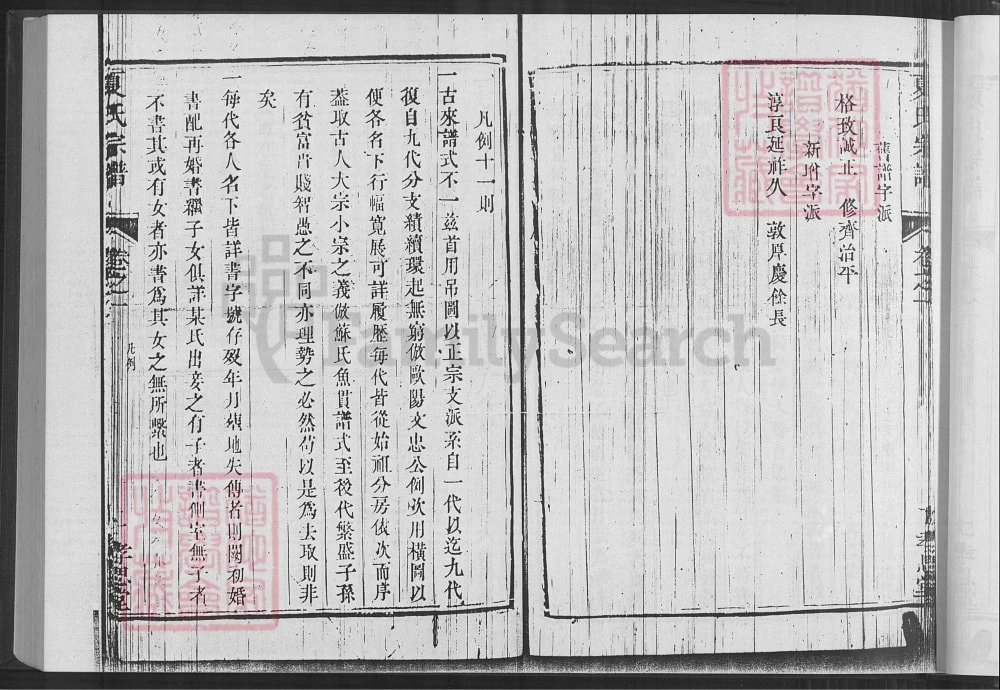 舊譜字派
格致誠正　修齊治平
新增字派
淳良延祥久　敦厚慶餘長
夏氏宗譜
卷之一
孝思堂
凡例十一則
一古來譜式不一茲首用吊圖以正宗支派系自一代以迄九代
復自九代分支續續環起無窮倣歐陽文忠公例次用橫圖以
便各名下行幅寬展可詳履歷每代皆從始祖分房依次而序
蓋取古人大宗小宗之義倣蘇氏魚貫譜式至後代繁盛子孫
有貧富貴賤智愚之不同亦理勢之必然苟以是為去取則非
矣
一每代各人名下皆詳書字號存歿年月葬地失傳者則闕初婚
書配再婚書繼子女俱詳某氏出妾之有子者書側室無子者
不書其或有女者亦書為其女之無所繫也
夏氏宗譜
卷之一
凡例
一
孝思堂
FamilySearch